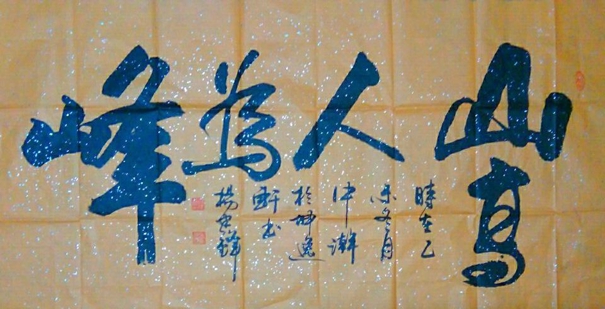 山高人為峰
時在乙
未冬月
中澣
於逸
軒書
楊